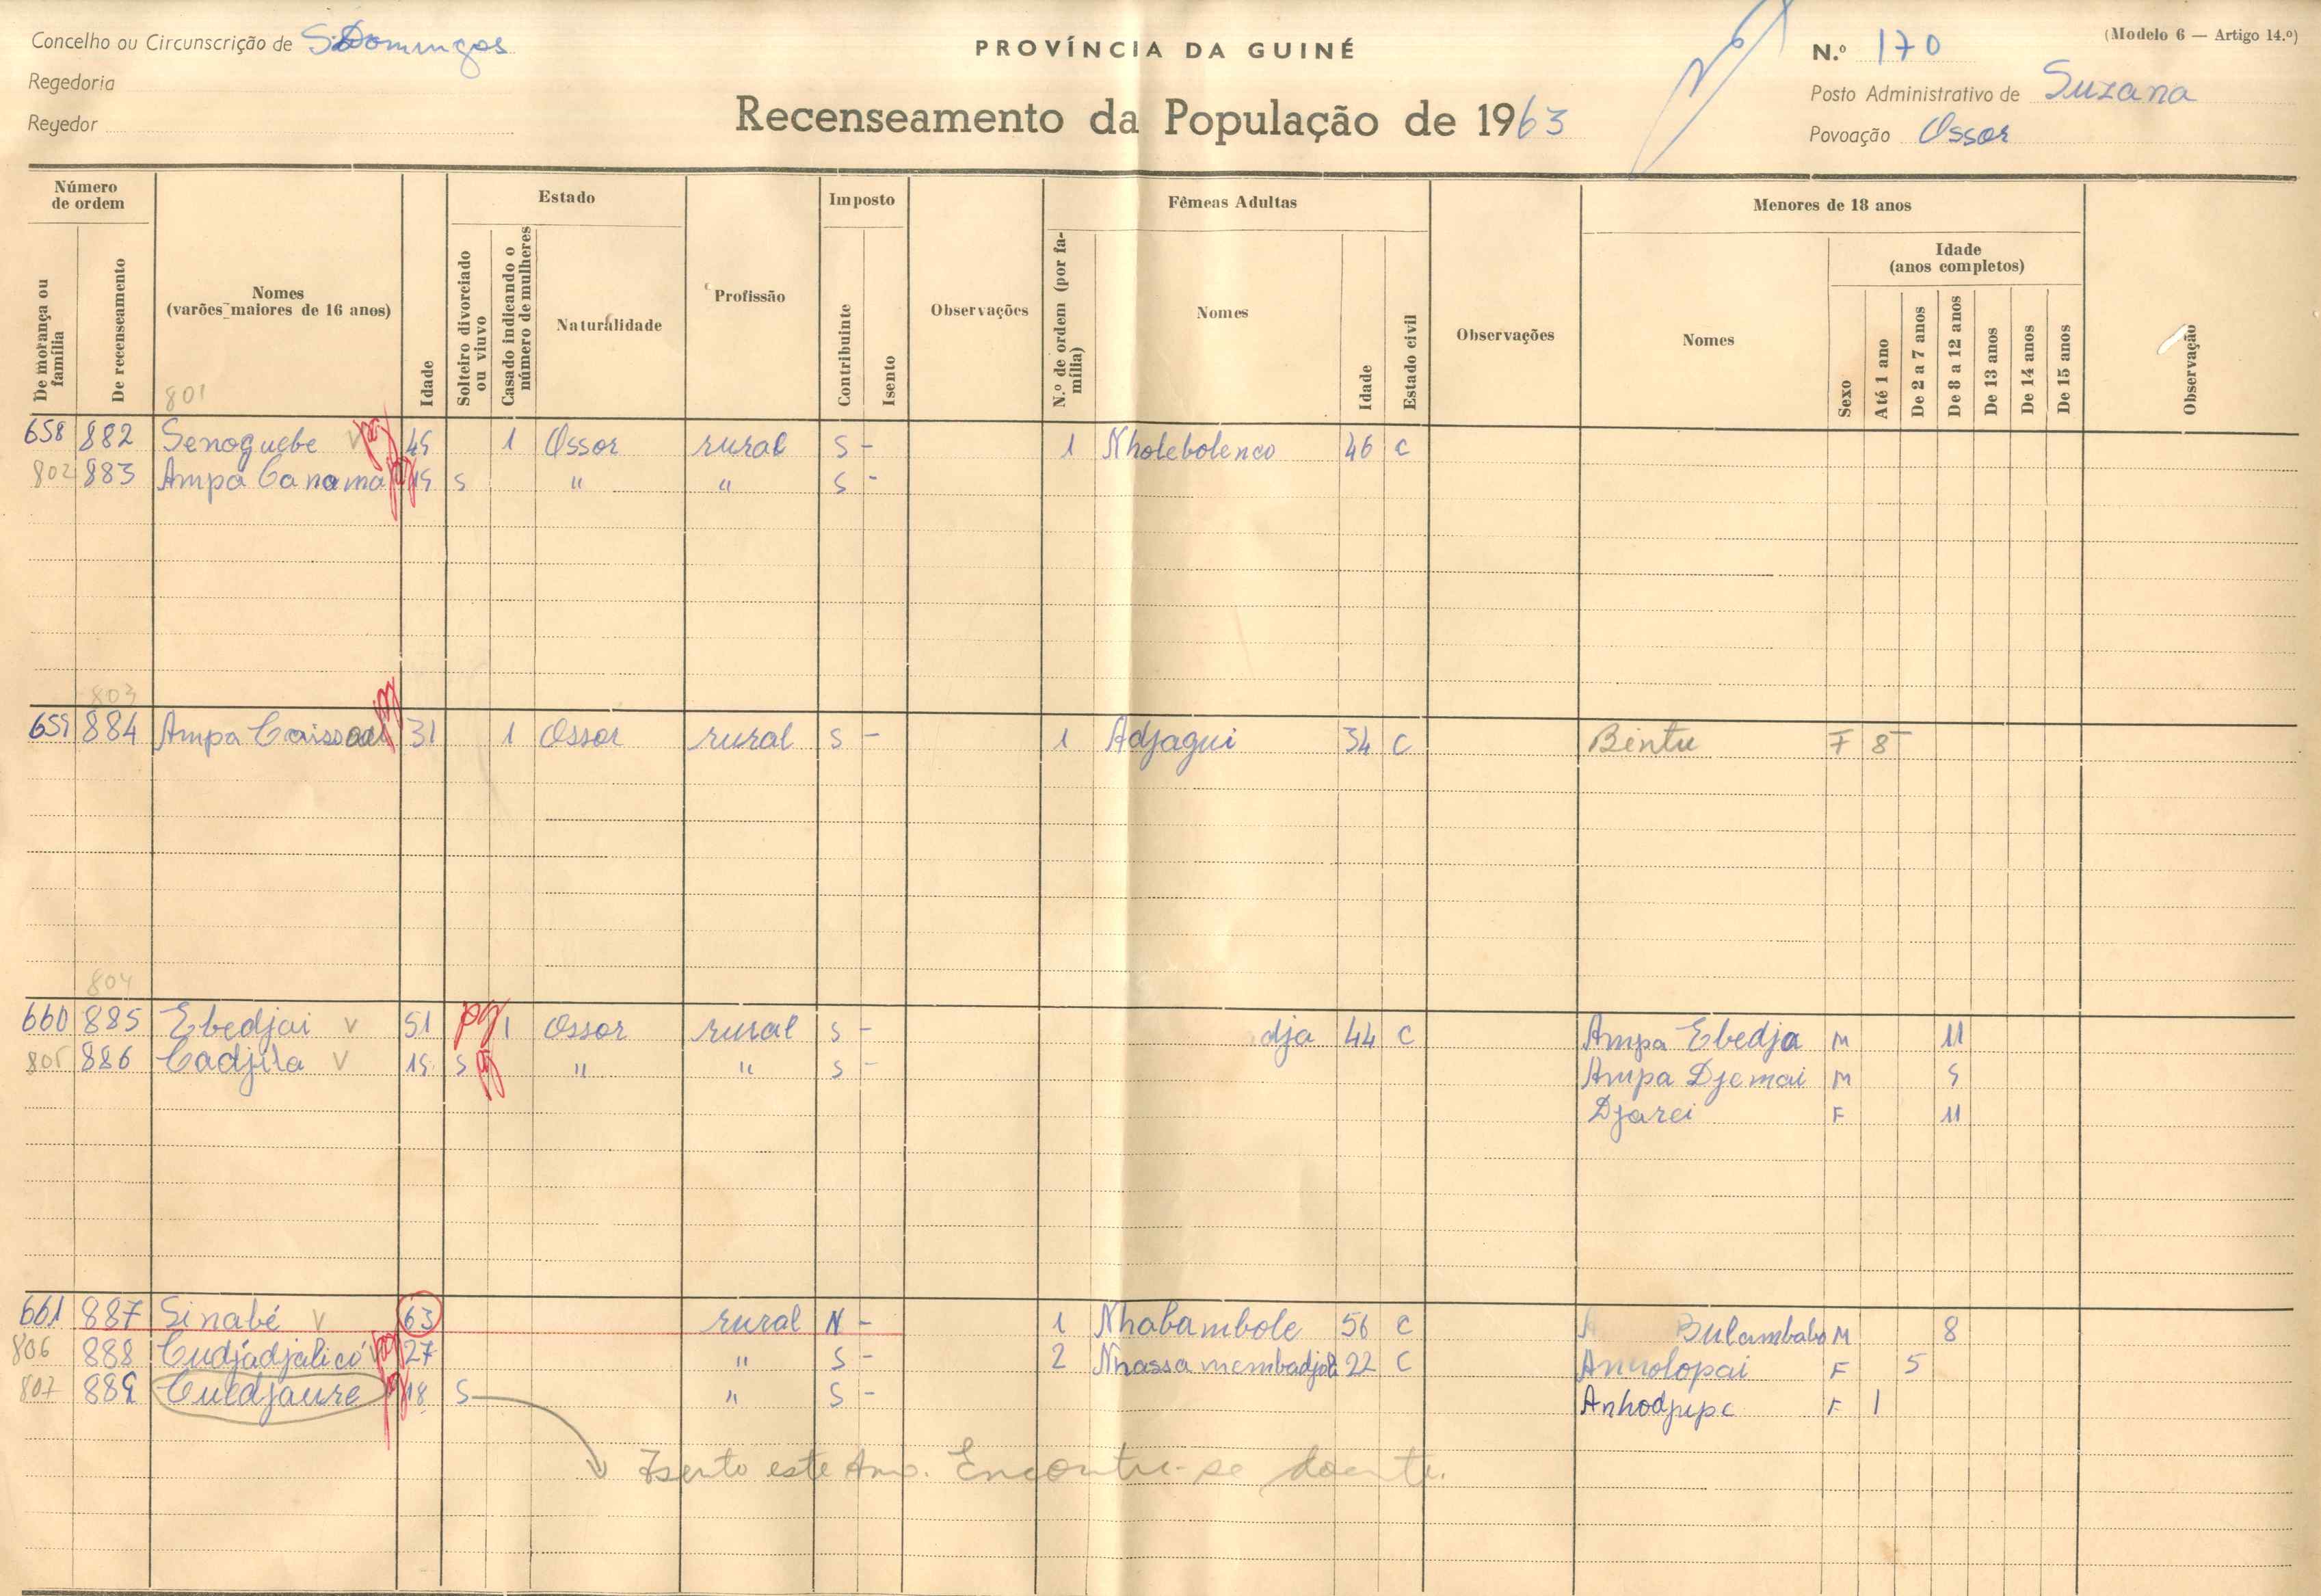 Concelho ou Circunscrição de S. Domingos
Regedoria
Regedor
PROVÍNCIA DA GUINÉ
Recenseamento da População de 1963
(Modelo 6 — Artigo 14.º)
N.º 170
Posto Administrativo de Suzana
Povoação Ossor
Número de ordem
De morança ou família
De recenseamento
Nomes (varões maiores de 16 anos)
Idade
Estado
Solteiro divorciado ou viuvo
Casado indicando o número de mulheres
Naturalidade
Profissão
Imposto
Contribuinte
Isento
Observações
Fêmeas Adultas
N.º de ordem (por família)
Nomes
Idade
Estado civil
Observações
Menores de 18 anos
Nomes
Sexo
Idade (anos completos)
Até 1 ano
De 2 a 7 anos
De 8 a 12 anos
De 13 anos
De 14 anos
De 15 anos
Observação
801
658 882 Senoguebe V pg 45 1 Ossor rural S - 1 Nholebolenco 46 C
802 883 Ampa Canama pg 19 S " " S -
803
659 884 Ampa pg 31 1 Ossor rural S - 1 Adjagui 34 C Bintu F 8
804
660 885 Ebedjai V 51 pg 1 Ossor rural S - dja 44 C Ampa Ebedja M 11
805 886 Cadjila V 19 S pg " " S - Ampa Djemai M 9
Djarei F 11
661 887 Sinabé V 63 rural N - 1 Nhabambole 56 C Bulambabo M 8
806 888 Cudjadjalicó V pg 27 " S - 2 Nhassamembadjola 22 C F 5
807 889 Cuedjaure pg 18 S " S - F 1
Isento este Ano. Encontra-se doente.